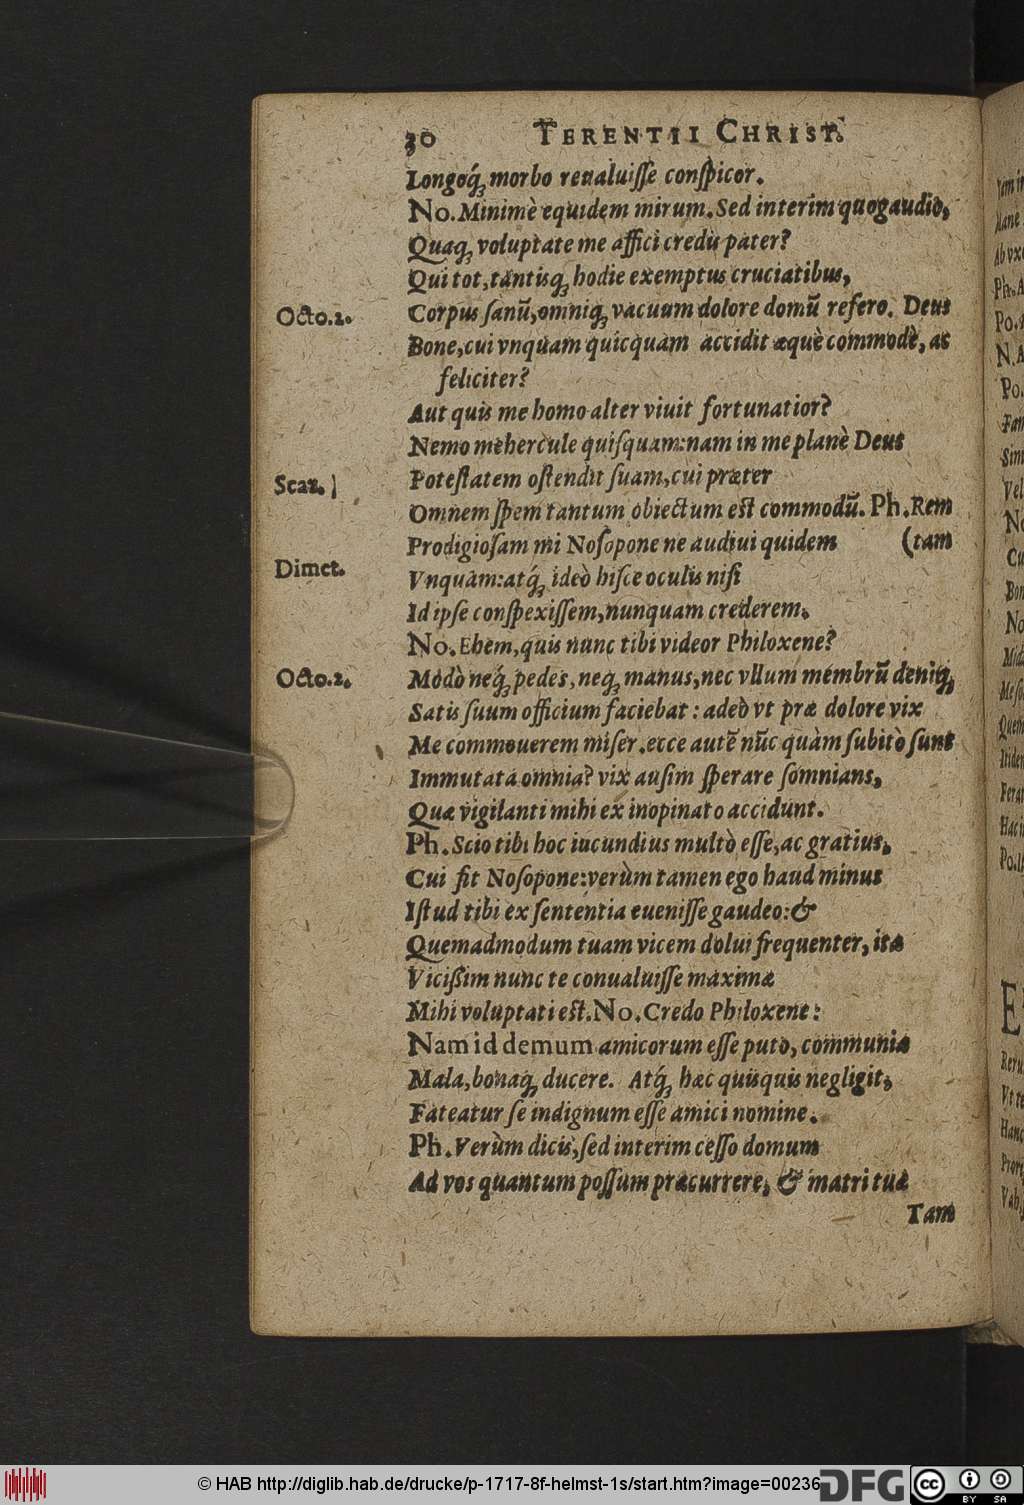 30 TERENTII CHRIST.
Longoq́; morbo reualuisse conspicor.
No. Minimè equidem mirum. Sed interim quo gaudio,
Quaq; voluptate me affici credis pater?
Qui tot, tantisq; hodie exemptus cruciatibus,
Octo. 2. Corpus sanũ, omniq; vacuum dolore domũ refero. Deus
Bone, cui vnquam quicquam accidit æquè commodè, ac
feliciter?
Aut quis me homo alter viuit fortunatior?
Nemo mehercule quisquam: nam in me planè Deus
Scaz. Potestatem ostendit suam, cui præter
Omnem spem tantum obiectum est commodũ. Ph. Rem
Prodigiosam mi Nosopone ne audiui quidem (tam
Dimet. Vnquàm: atq́; ideò hisce oculis nisi
Id ipse conspexissem, nunquam crederem.
No. Ehem, quis nunc tibi videor Philoxene?
Octo. 2. Modò neq́; pedes, neq́; manus, nec vllum membrũ deniq;
Satis suum officium faciebat: adeò vt præ dolore vix
Me commouerem miser. ecce autẽ nũc quàm subitò sunt
Immutata omnia? vix ausim sperare somnians,
Quæ vigilanti mihi ex inopinato accidunt.
Ph. Scio tibi hoc iucundius multò esse, ac gratius,
Cui fit Nosopone: verùm tamen ego haud minus
Istud tibi ex sententia euenisse gaudeo: &
Quemadmodum tuam vicem dolui frequenter, ita
Vicißim nunc te conualuisse maximæ
Mihi voluptati est. No. Credo Philoxene:
Nam id demum amicorum esse puto, communia
Mala, bonaq; ducere. Atq́; hæc quisquis negligit,
Fateatur se indignum esse amici nomine.
Ph. Verùm dicis, sed interim cesso domum
Ad vos quantum possum præcurrere, & matri tuæ
Tam
© HAB http://diglib.hab.de/drucke/p-1717-8f-helmst-1s/start.htm?image=00236
DFG
cc BY SA